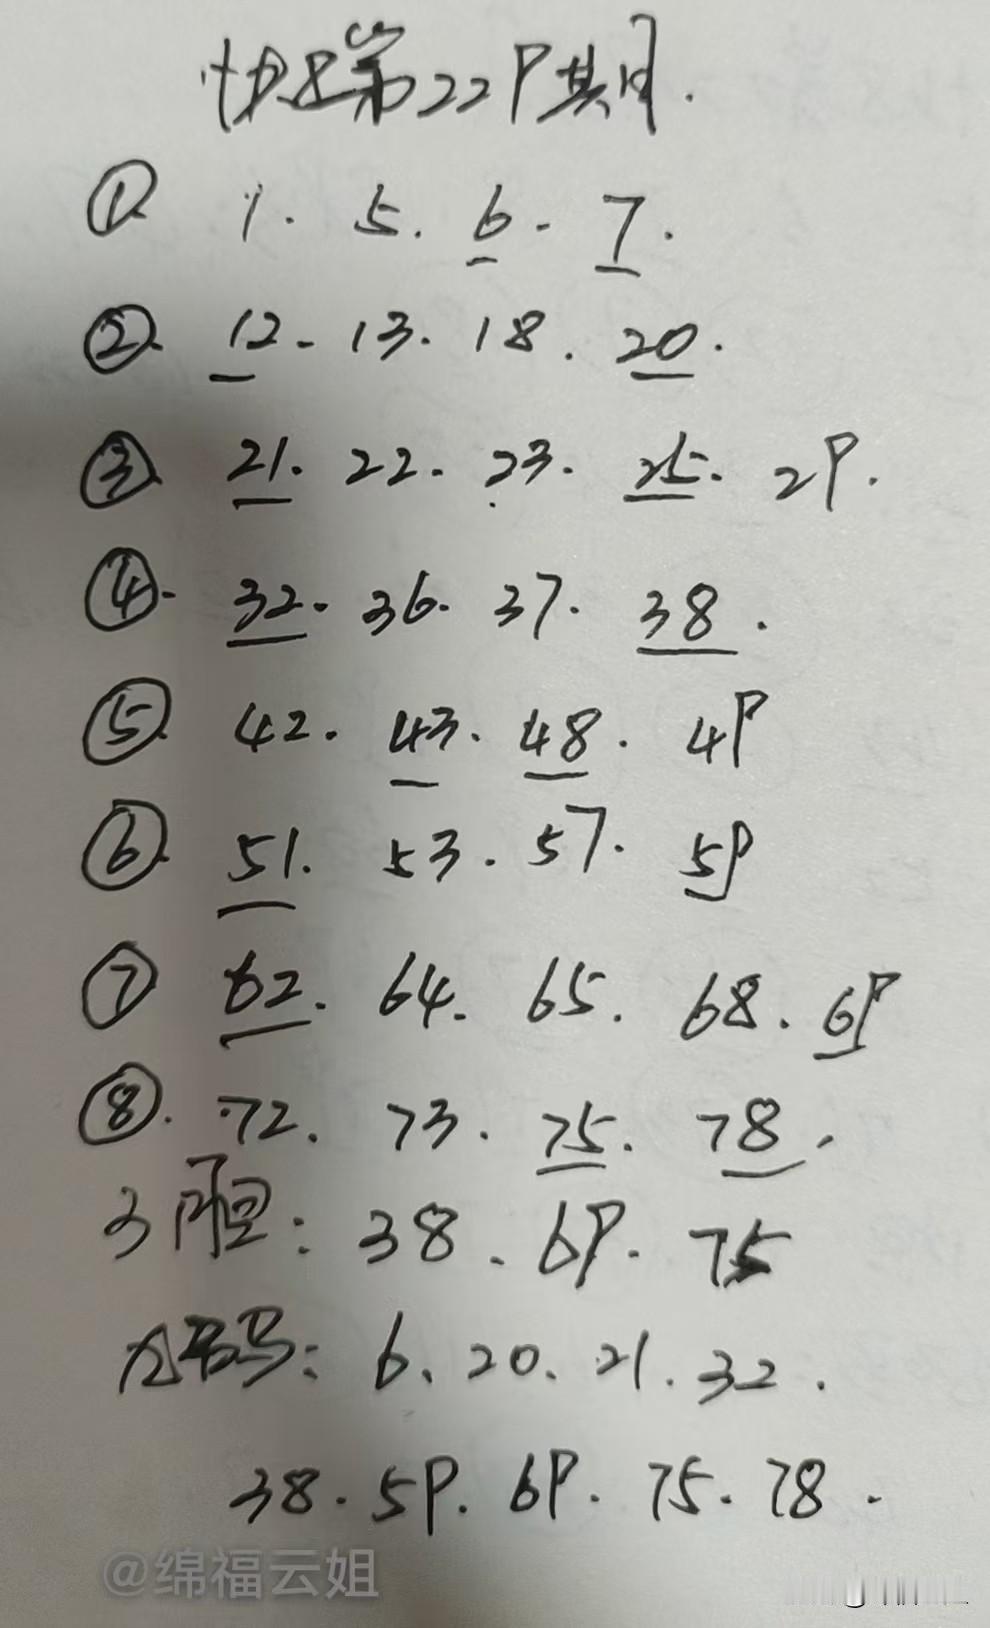 快8第229期.
① 1. 5. 6. 7.
②. 12. 13. 18. 20.
③. 21. 22. 23. 25. 29.
④. 32. 36. 37. 38.
⑤. 42. 43. 48. 49
⑥. 51. 53. 57. 59
⑦ 62. 64. 65. 68. 69
⑧. 72. 73. 75. 78.
3胆: 38、69. 75
码: 6、20、21. 32.
38. 59. 69. 75. 78.
@绵福云姐